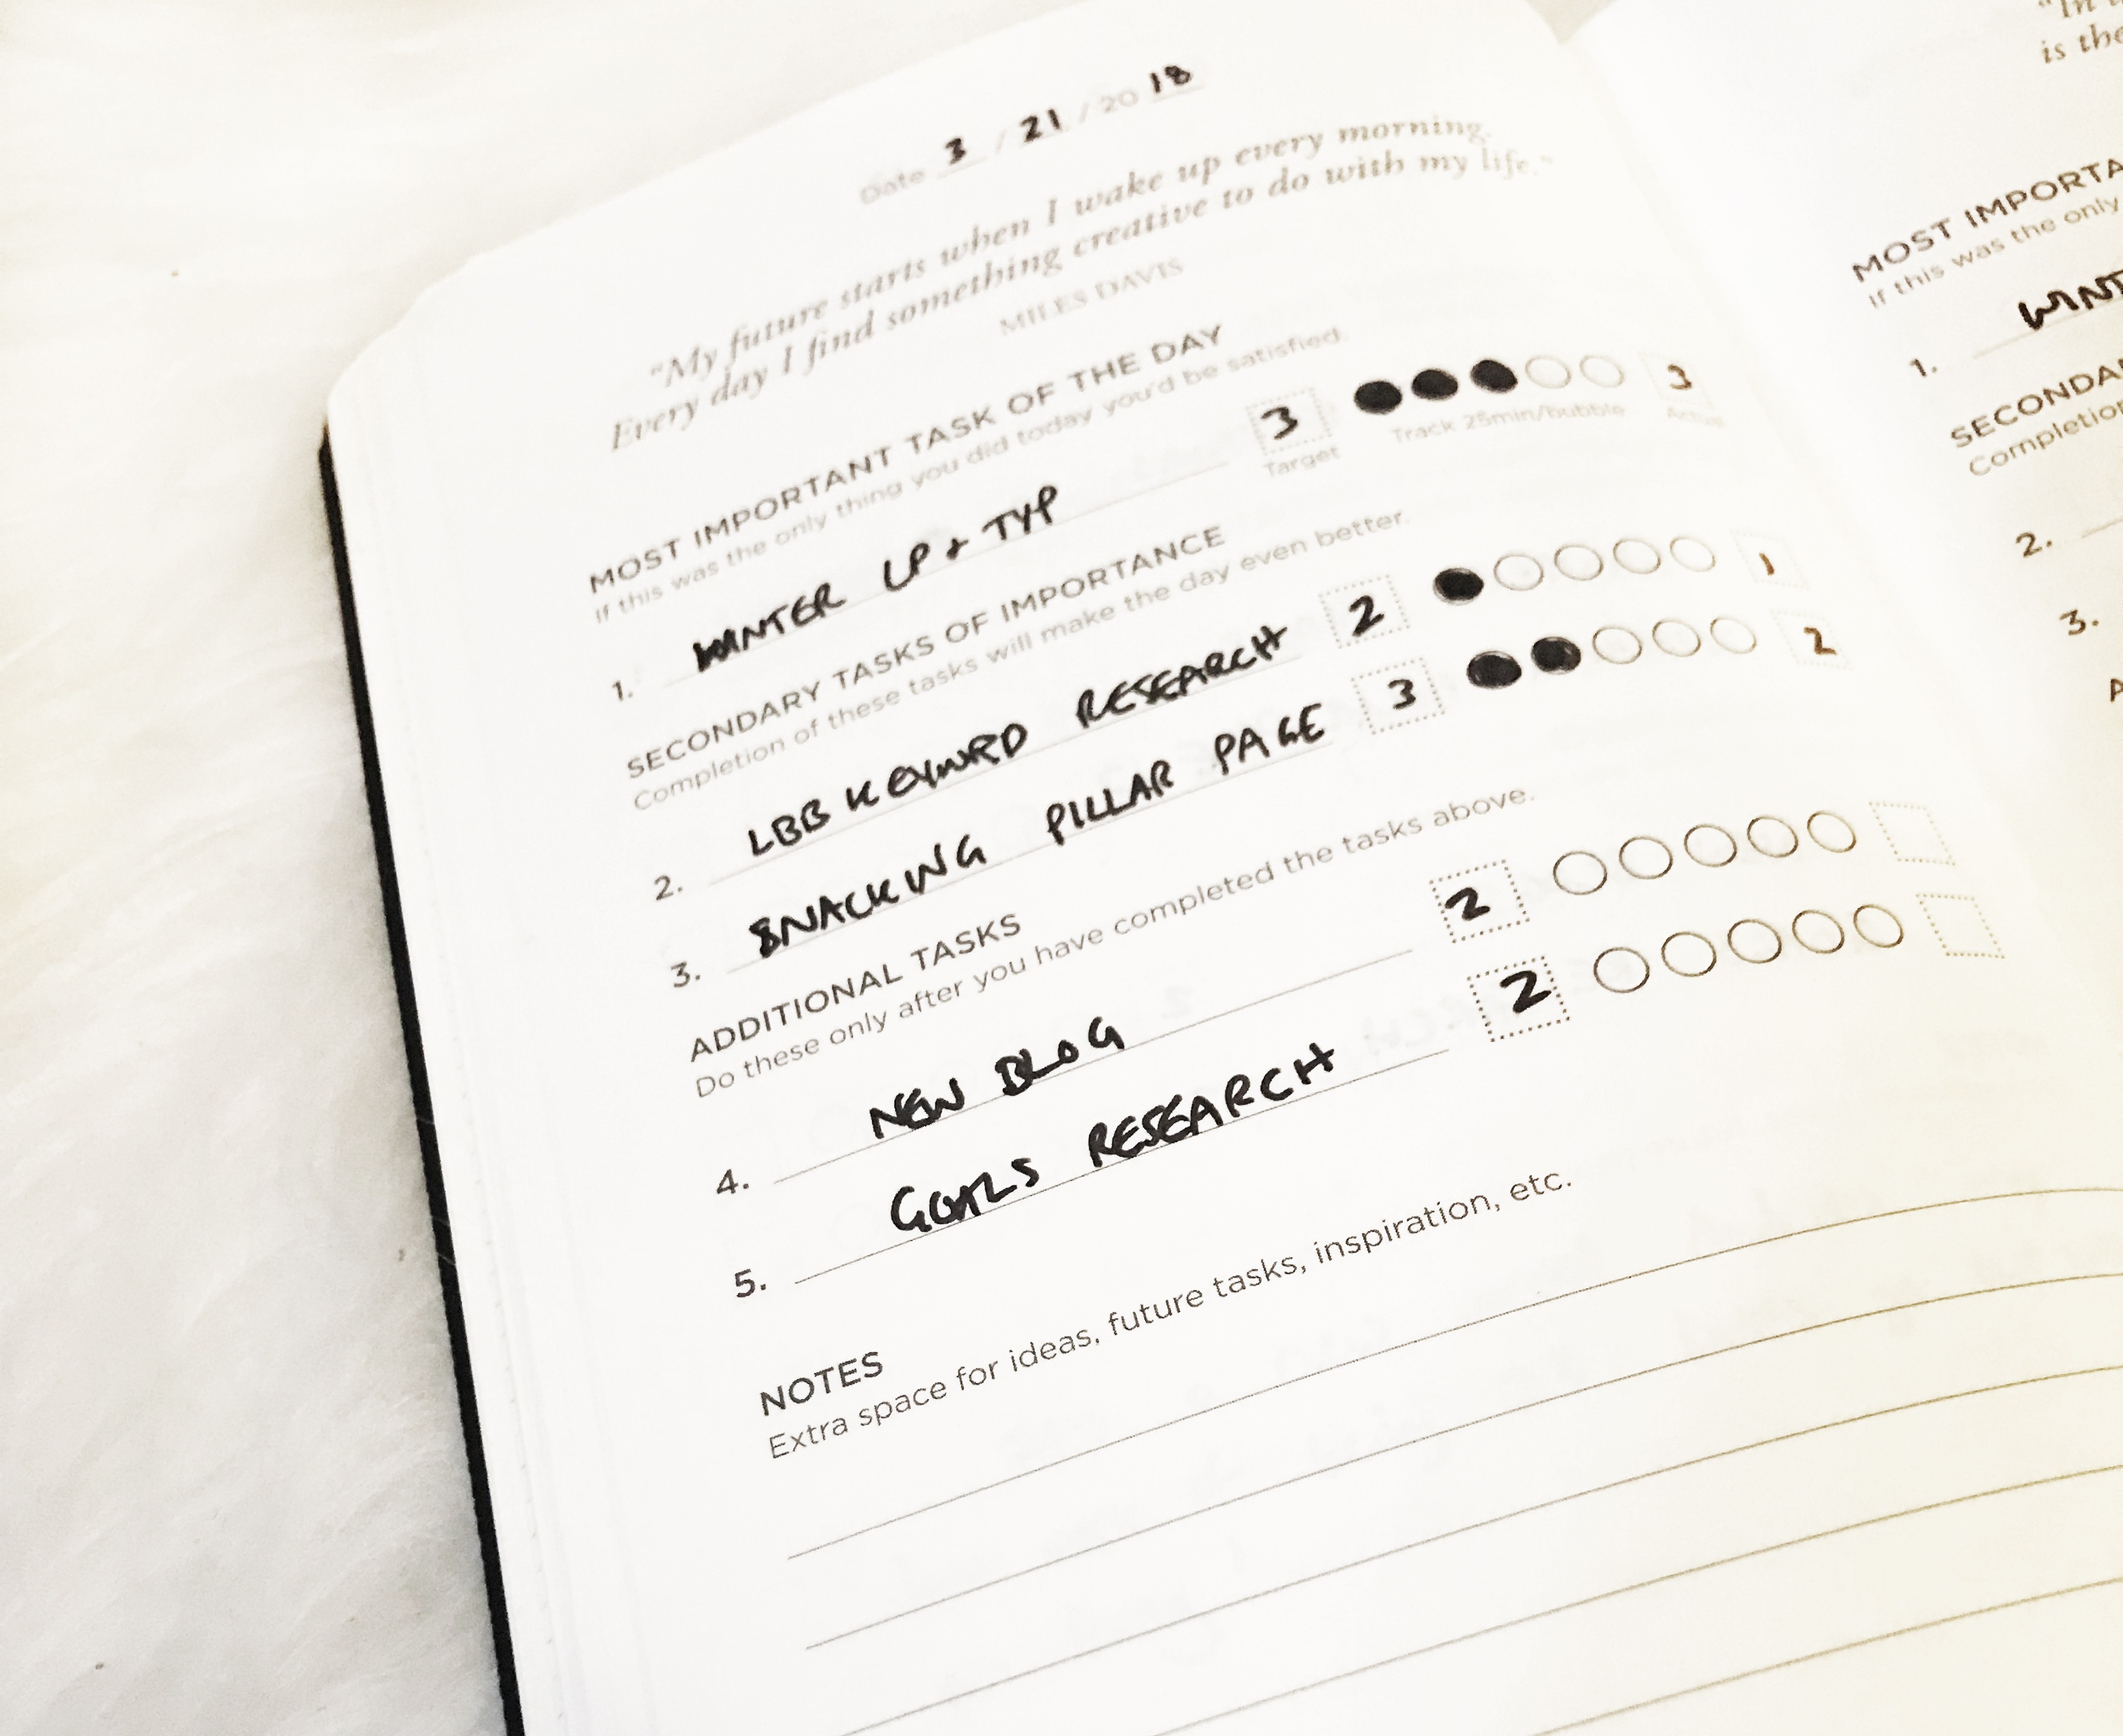 Date 3 / 21 / 20 18
"My future starts when I wake up every morning.
Every day I find something creative to do with my life."
MILES DAVIS
MOST IMPORTANT TASK OF THE DAY
If this was the only thing you did today you'd be satisfied.
1. WINTER LP + TYP 3 3
Target Track 25min/bubble Actual
SECONDARY TASKS OF IMPORTANCE
Completion of these tasks will make the day even better.
2. LBB KEYWORD RESEARCH 2 1
3. SNACKING PILLAR PAGE 3 2
ADDITIONAL TASKS
Do these only after you have completed the tasks above.
4. NEW BLOG 2
5. GOALS RESEARCH 2
NOTES
Extra space for ideas, future tasks, inspiration, etc.
"In
is the
MOST IMPORTA
If this was the only
1. WINT
SECONDA
Completion
2.
3.
A